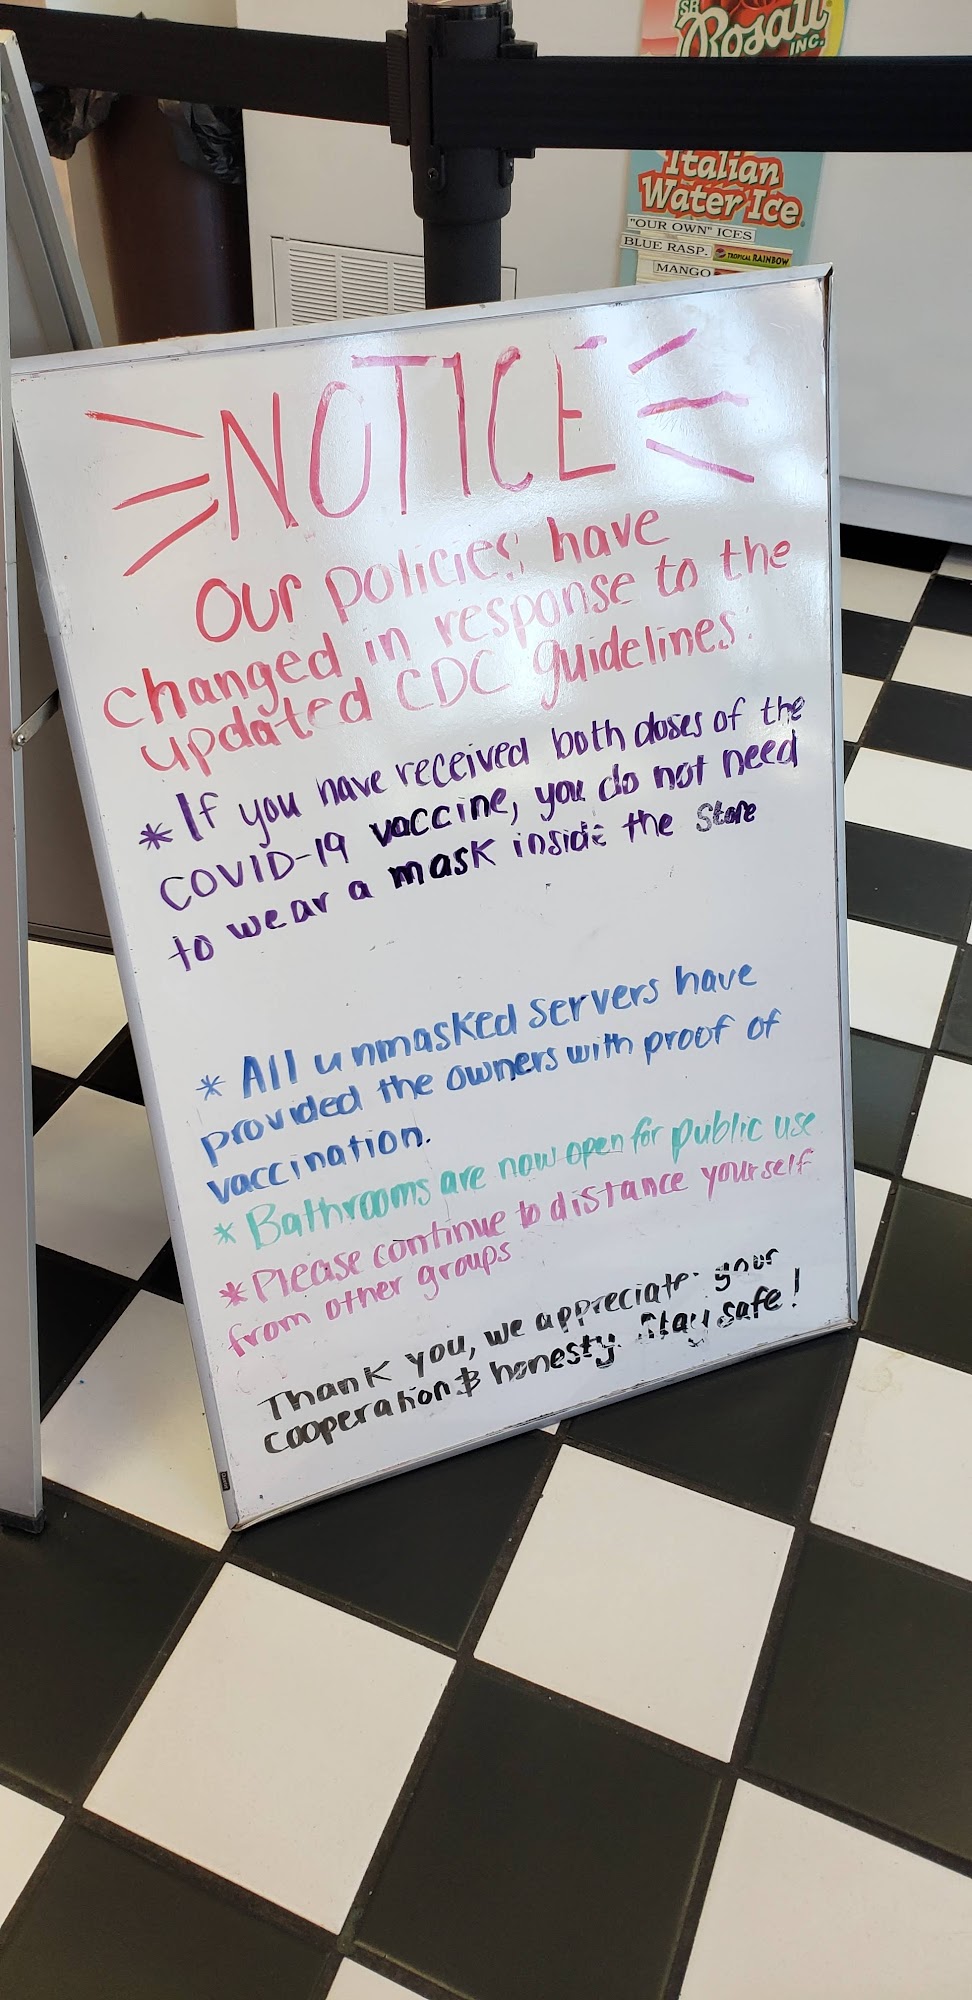 Rosati
INC.
Italian
Water Ice
"OUR OWN" ICES
BLUE RASP.
TROPICAL RAINBOW
MANGO
NOTICE
Our policies have
changed in response to the
updated CDC guidelines.
* If you have received both doses of the
COVID-19 vaccine, you do not need
to wear a mask inside the store
* All unmasked servers have
provided the owners with proof of
vaccination.
* Bathrooms are now open for public use
* Please continue to distance yourself
from other groups
Thank you, we appreciate your
cooperation & honesty. Stay safe!